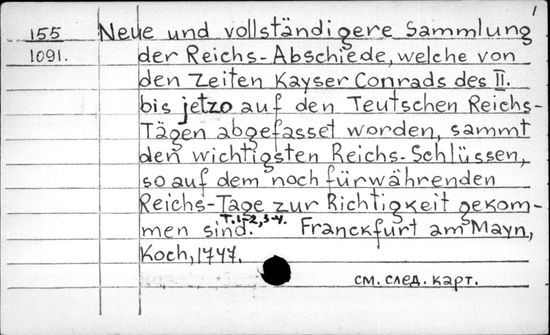 1
155
1091.
Neue und vollständigere Sammlung
der Reichs-Abschiede, welche von
den Zeiten Kayser Conrads des II.
bis jetzo auf den Teutschen Reichs-
Tägen abgefasset worden, sammt
den wichtigsten Reichs-Schlüssen,
so auf dem noch fürwährenden
Reichs-Tage zur Richtigkeit gekom-
men sind. T.1-2,3-4. Franckfurt am Mayn,
Koch, 1747.
см. след. карт.